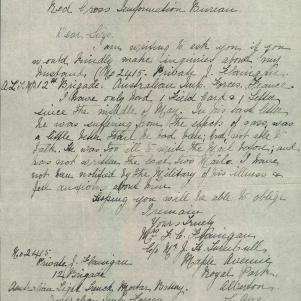 Red Cross Information Bureau
Dear Sir,
I am writing to ask you if you
would kindly make inquiries about my
husband, (No 2415. Private J. Flanigan
A.L.T.M. 12th Brigade. Australian Imp. Forces, France
I have only had 1 Field Card & 1 letter
since the middle of May. In his last letter
he was suffering from the effects of gas, was
a little better than he had been, but not able to
talk. He was too ill to write the Mail before, and
has not written the last two Mails. I have
not been notified by the Military of his illness &
feel anxious about him.
Hoping you will be able to oblige
I remain
Yours Truly
Mrs F. C. Flanigan
C/o Mrs J. H.
Maple Avenue
Royal Park
No 2415
Private J. Flanigan
12 Brigade
Australian Light Trench Mortar Battery
Australian Imp. Forces